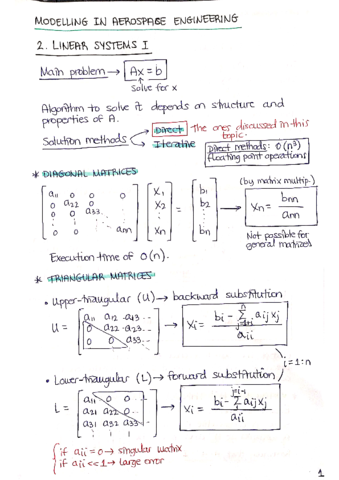 MODELLING IN AEROSPACE ENGINEERING
2. LINEAR SYSTEMS I
Main problem → Ax = b
Solve for x
Algorithm to solve it depends on structure and
properties of A.
Solution methods → Direct The ones discussed in this topic.
→ Iterative
Direct methods: O(n³)
floating point operations
* DIAGONAL MATRICES
(by matrix multip.)
[a11 0 0 0; 0 a22 0 ⋮; 0 0 a33 ...; ⋮ ⋮ ⋮; ann] [x1; x2; ⋮; xn] = [b1; b2; ⋮; bn] → xn = bnn/ann
Not possible for
general matrized
Execution time of O(n).
* TRIANGULAR MATRICES
• Upper-triangular (U) → backward substitution
U = [a11 a12 a13...; 0 a22 a23...; 0 0 a33...] → xi = (bi - Σ(j=i+1, n) aijxj)/aii
i=1:n
• Lower-triangular (L) → forward substitution
L = [a11 0 0 ..; a21 a22 0...; a31 a32 a33...; ⋮ ⋮ ⋮] → xi = (bi - Σ aijxj)/aii
if aii = 0 → singular matrix
if aii << 1 → large error
1